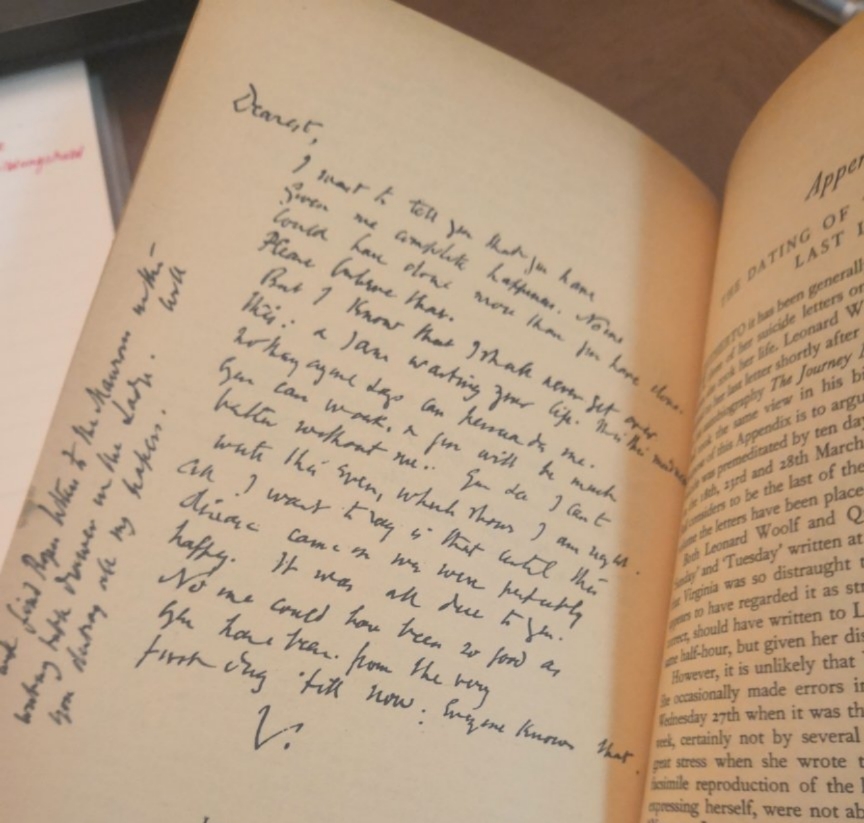 Dearest,
I want to tell you that you have
given me complete happiness. No one
could have done more than you have done.
Please believe that.
But I know that I shall never get over
this: & I am wasting your life. It is this madness
Nothing anyone says can persuade me.
You can work, & you will be much
better without me. You see I can't
write this even, which shows I am right.
All I want to say is that until this
disease came on we were perfectly
happy. It was all due to you.
No one could have been so good as
you have been. from the very
first day till now: Everyone knows that.
V.
will find Roger's letters to the Maurons in the
writing table drawer in the Lodge. Will
you destroy all my papers.
Appen
THE DATING OF
LAST L
it has been generally
of her suicide letters or
took her life. Leonard W
her last letter shortly after
autobiography The Journey
took the same view in his bi
of this Appendix is to argu
was premeditated by ten day
18th, 23rd and 28th March
considers to be the last of the
the letters have been place
Both Leonard Woolf and Q
Sunday' and 'Tuesday' written at
Virginia was so distraught
appears to have regarded it as str
correct, should have written to L
same half-hour, but given her dis
However, it is unlikely that
She occasionally made errors i
Wednesday 27th when it was th
week, certainly not by several
great stress when she wrote t
facsimile reproduction of the
expressing herself, were not ab